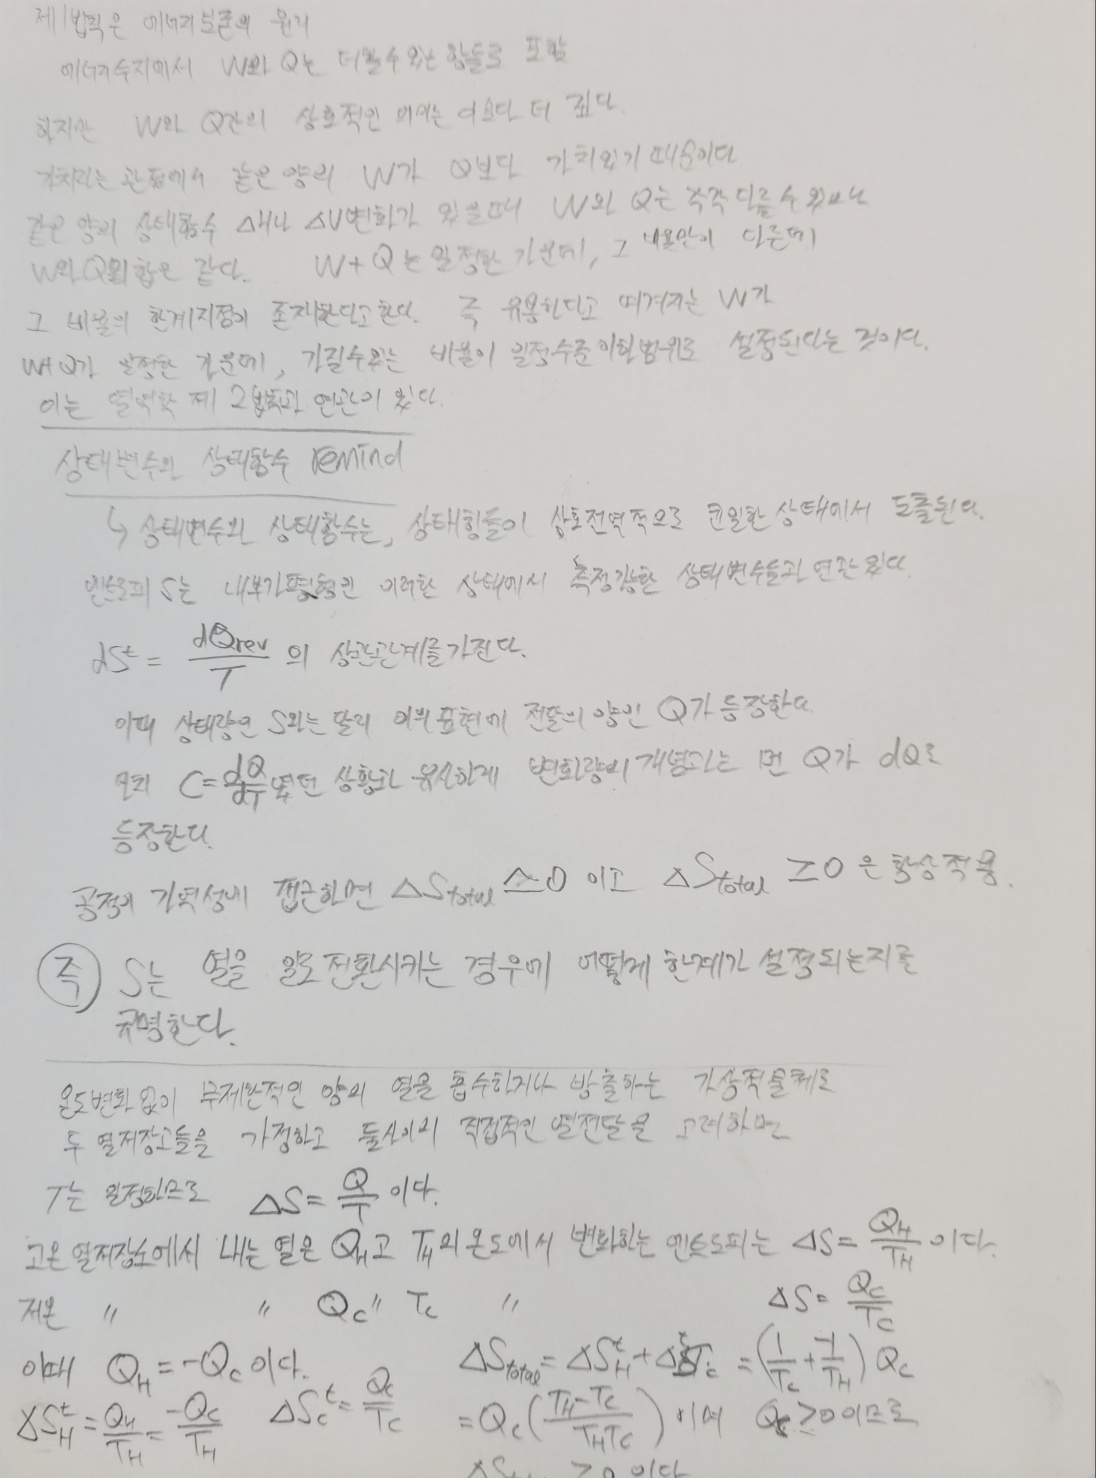 제1법칙은 에너지보존의 원리
에너지수지에서 W와 Q는 더할수있는 항들로 포함
하지만 W와 Q간의 상호적인 의미는 이보다 더 깊다.
가치라는 관점에서 같은 양의 W가 Q보다 가치있기 때문이다
같은 양의 상태함수 ΔH나 ΔU변화가 있을때 W와 Q는 각각 다를수 있으나
W와 Q의 합은 같다. W+Q는 일정한 가운데, 그 내용만이 다른데
그 비율의 한계지점이 존재한다고 한다. 즉 유용하다고 여겨지는 W가
W+Q가 일정한 가운데, 가질수있는 비율이 일정수준이하범위로 설정된다는 것이다.
이는 열역학 제2법칙과 연관이 있다.
상태변수와 상태함수 remind
↳ 상태변수와 상태함수는, 상태힘들이 상호전역적으로 균일한 상태에서 도출된다.
엔트로피 S는 내부가평형인 이러한 상태에서 측정가능한 상태변수들과 연관있다.
dSᵗ = dQrev/T 의 상관관계를가진다.
이때 상태량인 S와는 달리 이 표현에 전달의 양인 Q가 등장한다
C=dQ/dT였던 상황과 유사하게 변화량의 개념과는 먼 Q가 dQ로
등장한다.
공정이 가역성에 접근하면 ΔStotal ≃0 이고 ΔStotal ≥0 은 항상적용.
즉 S는 열을 일로 전환시키는 경우에 어떻게 한계가 설정되는지를
규명한다.
온도변화 없이 무제한적인 양의 열을 흡수하거나 방출하는 가상적물체로
두 열저장고들을 가정하고 둘사이의 직접적인 열전달을 고려하면
T는 일정하므로 ΔS= Q/T 이다.
고온 열저장소에서 내는 열은 QH고 TH의 온도에서 변화하는 엔트로피는 ΔS= QH/TH 이다.
저온 〃 〃 QC〃 TC 〃 ΔS= QC/TC
이때 QH=-QC이다. ΔStotal= ΔSᵗH+ΔSᵗC =(1/TC + -1/TH) QC
ΔSᵗH= QH/TH = -QC/TH ΔSᵗC= QC/TC =QC( TH-TC/THTC )이며 QC≥0이므로
≥0 이다